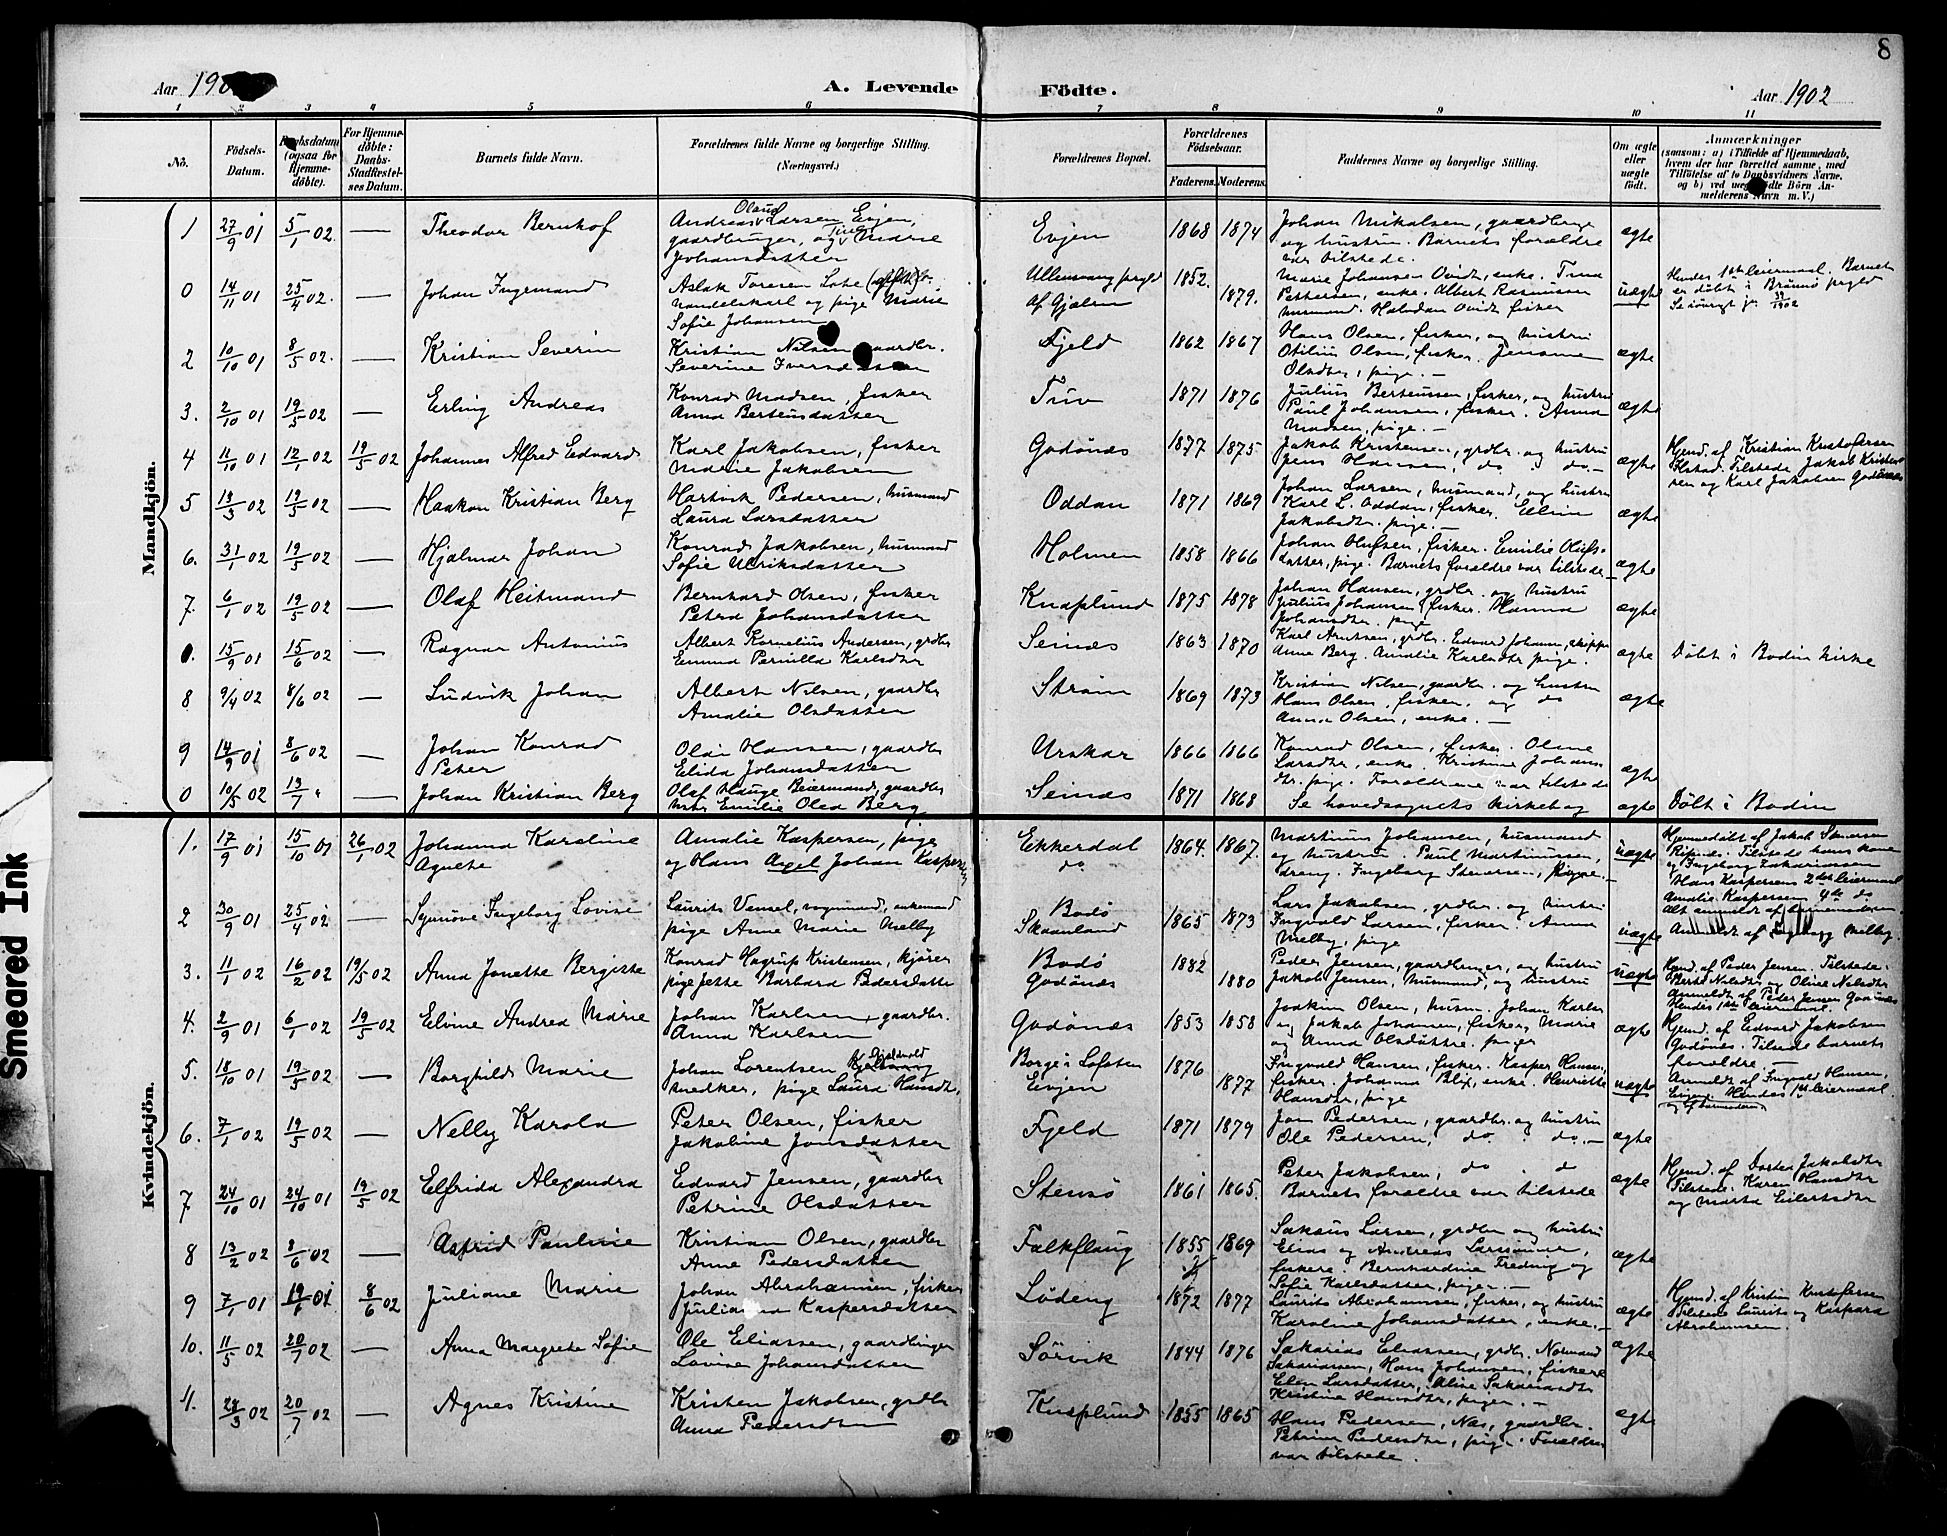 8
Aar 190
A. Levende Födte.
Aar 1902
1 2 3 4 5 6 7 8 9 10 11
Nö.
Födsels-Datum.
Daabsdatum (ogsaa for Hjemme-döbte).
For Hjemme-döbte: Daabs-Stadfæstel-ses Datum.
Barnets fulde Navn.
Forældrenes fulde Navne og borgerlige Stilling. (Næringsvei.)
Forældrenes Bopæl.
Forældrenes Födselsaar.
Faderens. Moderens.
Faddernes Navne og borgerlige Stilling.
Om ægte eller uægte födt.
Anmærkninger
(saasom: a) i Tilfælde af Hjemmedaab, hvem der har forrettet samme, med Tilföielse af to Daabsvidners Navne, og b) ved uægte födte Börn An-melderens Navn m. V.)
Mandkjön.
1 27/9 01 5/1 02 — Theodor Bernhof
Andreas Olaus Larsen Evjen, gaardbruger, og Marie Johansdatter
Evjen 1868 1874
Johan Nikolsen, gaardbruger og hustru. Barnets forældre var tilstede.
ægte
0 14/11 01 25/4 02. — Johan Ingemand
Aslak Toresen Lote handelskarl og pige Marie Sofie Johansen
Ullensvang prgld Af Gjælen 1852. 1879.
Marie Johansen Ovidt, enke. Trina Pettersen, enke. Albert Rasmussen husmand. Halvdan Ovidt fisker
uægte
Hendes 1ste leiermaal. Barnet er döbt i Brönnö prgld
2 10/10 01 8/5 02. — Kristian Severin
Kristian Nilsen gaardbr. Severine Iversdatter
Fjeld 1862 1867
Hans Olsen, fisker, og hustru Otilius Olsen, fisker. Jensine Olsdtr, pige. —
ægte
3. 2/10 01 19/5 02 — Erling Andreas
Konrad Madsen, fisker Anna Bertensdatter
Tuv 1871 1876
Julius Berteussen, fisker, og hustru Paul Johansen, fisker. Anna Madsen, pige. —
ægte
4 11/10 01 12/1 02 19/5 02 Johannes Alfred Edvard
Karl Jakobsen, fisker Marie Jakobsen
Godönes 1877 1875
Jakob Kristensen, grdbr. og hustru Jens Hansen, do do —
ægte
Hjmd. af Kristian Kristofersen Ilstad. Tilstede Jakob Kristensen og Karl Jakobsen Godönes
5 13/3 02 19/5 02 — Haakon Kristian Berg
Hartvik Pedersen, husmand Laura Larsdatter
Oddan 1871 1869
Johan Larsen, husmand, og hustru Karl L. Oddan, fisker. Eline Jakobsdtr. pige. —
ægte
6. 31/1 02 19/5 02 — Hjalmar Johan
Konrad Jakobsen, husmand Sofie Ulriksdatter
Holmen 1858 1866
Johan Olufsen, fisker. Emilie Olufsdatter, pige. Barnets forældre var tilstede
ægte
7. 6/1 02 19/5 02 — Olaf Heitmand
Bernhard Olsen, fisker Petra Johansdatter
Knaplund 1875 1878
Johan Hansen, grdbr. og hustru Julius Johansen, fisker. Hanna Johansdtr. pige
ægte
15/9 01 15/6 02 — Ragnar Antonius
Albert Kornelius Andersen, grdbr Emma Pernilla Karlsdtr
Seines 1863 1870
Karl Arntsen, grdbr. Edvard Johann, skipper Anne Berg. Amalie Karlsdtr pige.
ægte
Döbt i Bodin kirke
8 9/4 02 8/6 02 — Ludvik Johan
Albert Nilsen, gaardbr Amalie Olsdatter
Ström 1869 1873
Kristian Nilsen, gaardbr. og hustru Hans Olsen, fisker, og do Anna Olsen, enke. —
ægte
9 14/9 01 8/6 02 — Johan Konrad Peter
Olai Hansen, gaardbr Elida Johansdatter
Urskar 1866 1866
Konrad Olsen, fisker. Oline Larsdtr, enke. Kristine Johansdtr. pige. Forældrene var tilstede
ægte
0 10/5 02 13/7 " — Johan Kristian Berg
Olaf Hauge Beiermand, gaardbr Emilie Olea Berg
Seines 1871 1868
Se hovedsognets kirkebog
ægte
Döbt i Bodin
Kvindekjön.
1. 17/9 01 15/10 01 26/1 02 Johanna Karoline Agnete
Amalie Kaspersen, pige og Hans Axel Johan Kaspersen
Ekkerdal do 1864. 1867.
Martinus Johansen, husmand og hustru. Paul Martinussen, dreng. Ingeborg Stenersen, pige.
uægte
Hjemmedöbt af Jakob Stenersen Ripnes. Tilstede hans kone og Ingeborg Zakariassen Hans Kaspersens 2det leiermaal Amalie Kaspersen 4de do Alt anmeldt af barnemoderen
2 30/9 01 25/4 02 — Synnöve Ingeborg Lovise
Laurits Vensel, vognmand, enkemand pige Anne Marie Melby
Bodö Skaanland 1865 1873
Lars Jakobsen, grdbr. og hustru Ingvald Larsen, fisker. Anna Melby, pige
uægte
Anmeldt af Ingeborg Melby.
3. 11/1 02 16/2 02 19/5 02 Anna Jonette Bergitte
Konrad Hagrup Kristensen, kjörer pige Jette Barbara Pedersdatter
Bodö Godönes 1882 1880
Peder Jensen, gaardbruger, og hustru Jakob Jensen, husmand, og hustru
uægte
Hjmd. af Peder Jensen. Tilstede: Berit Nilsdtr og Oline Nilsdtr Anmeldt af Peder Jensen Godönes Hendes 1ste leiermaal.
4. 2/9 01 6/1 02 19/5 02 Elvine Andrea Marie
Johan Karlsen, gaardbr. Anna Karlsen
Godönes 1853 1858
Joakim Olsen, husm. Johan Karlsen og Jakob Johansen, fisker, Marie og Anna Olsdöttre. piger
ægte
Hjmd. af Edvard Jakobsen Godönes. Tilstede barnets forældre.
5. 18/10 01 19/5 02 — Borghild Marie
Johan Lorentsen Gjeldvold snedker, pige Laura Hansdtr.
Borge i Lofoten Evjen 1876 1877
Ingvald Hansen, fisker. Kasper Hansen, fisker. Johanna Blix, enke. Henriette Hansdtr, pige
uægte
Anmeldt af Ingvald Hansen, Evjen. Hendes 1ste leiermaal. og af barnemoderen
6. 7/1 02 19/5 02 — Nelly Karola
Peter Olsen, fisker Jakobine Jonsdatter
Fjeld 1871 1879
Jon Pedersen, gaardbr. og hustru Ole Pedersen, do do. —
ægte
7 24/10 01 24/10 01 19/5 02 Elfrida Alexandra
Edvard Jensen, gaardbr Petrine Olsdatter
Stensö 1861 1865.
Peter Jakobsen, do do Barnets forældre var tilstede
ægte
Hjmd. af Dortea Jakobsdtr Tilstede: Karen Hansdtr og Marta Eilertsdtr
8 13/2 02 8/6 02 — Astrid Pauline
Kristian Olsen, gaardbr Anne Pedersdatter
Falkflaug 1855 1869
Sakaus Larsen, grdbr og hustru Elias og Andreas Larsönner, fiskere. Bernhardine Freding og Sofie Karlsdatter, piger. —
ægte
9 7/1 01 19/1 01 8/6 02 Juliane Marie
Johan Abrahamsen, fisker Juliana Kaspersdatter
Löding 1872 1877
Laurits Abrahamsen, fisker, og hustru Karoline Johansdatter, enke. —
ægte
Hjmd. af Kristian Kristofersen Tilstede Laurits og Kaspara Abrahamsen.
10. 11/5 02 20/7 02 — Anna Margrete Sofie
Ole Eliassen, gaardbruger Lovise Johansdatter
Sörvik 1844 1876
Sakarias Eliassen, grdbr. Normand Sakariassen, Hans Johansen, fiskere Elen Larsdatter, Aline Sakariasdtr Kristine Hansdtr, piger. —
ægte
11. 28/3 02 20/7 02 — Agnes Kristine
Kristen Jakobsen, grdbr Anna Pedersdtr
Knaplund 1855 1865
Hans Pedersen, Nes, gaardbr. Petrine Pedersdtr, pige. Forældrene var tilstede.
ægte
Smeared Ink